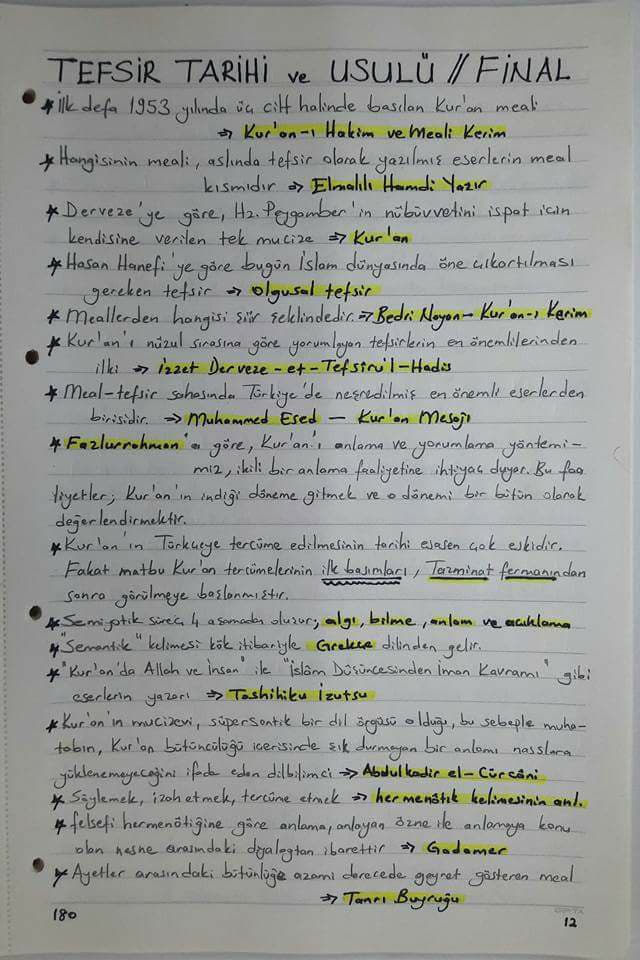 TEFSİR TARİHİ ve USULÜ // FİNAL
* İlk defa 1953 yılında üç cilt halinde basılan Kur'an meali
⇒ Kur'an-ı Hakim ve Meali Kerim
* Hangisinin meali, aslında tefsir olarak yazılmış eserlerin meal
kısmıdır ⇒ Elmalılı Hamdi Yazır
* Derveze'ye göre, Hz. Peygamber'in nübüvvetini ispat için
kendisine verilen tek mucize ⇒ Kur'an
* Hasan Hanefi'ye göre bugün İslam dünyasında öne çıkartılması
gereken tefsir ⇒ Olgusal tefsir
* Meallerden hangisi şiir şeklindedir. ⇒ Bedri Noyan - Kur'an-ı Kerim
* Kur'an'ı nüzul sırasına göre yorumlayan tefsirlerin en önemlilerinden
ilki ⇒ İzzet Derveze - et-Tefsiru'l-Hadis
* Meal-tefsir sahasında Türkiye'de neşredilmiş en önemli eserlerden
birisidir. ⇒ Muhammed Esed — Kur'an Mesajı
* Fazlurrahman'a göre, Kur'an'ı anlama ve yorumlama yöntemi-
miz, ikili bir anlama faaliyetine ihtiyaç duyar. Bu faa
liyetler; Kur'an'ın indiği döneme gitmek ve o dönemi bir bütün olarak
değerlendirmektir.
* Kur'an'ın Türkçeye tercüme edilmesinin tarihi esasen çok eskidir.
Fakat matbu Kur'an tercümelerinin ilk basımları, Tazminat fermanından
sonra görülmeye başlanmıştır.
* Semiyotik süreç 4 aşamadan oluşur; algı, bilme, anlam ve açıklama
* "Semantik" kelimesi kök itibariyle Grekçe dilinden gelir.
* "Kur'an'da Allah ve İnsan" ile "İslâm Düşüncesinden İman Kavramı" gibi
eserlerin yazarı ⇒ Toshihiku İzutsu
* Kur'an'ın mucizevi, süpersontik bir dil örgüsü olduğu, bu sebeple muha-
tabın, Kur'an bütüncülüğü içerisinde şık durmayan bir anlamı nasslara
yüklenemeyeceğini ifade eden dilbilimci ⇒ Abdulkadir el-Cürcâni
* Söylemek, izah etmek, tercüme etmek ⇒ hermenötik kelimesinin anl.
* felsefi hermenötiğine göre anlama, anlayan özne ile anlamaya konu
olan nesne arasındaki diyalogtan ibarettir ⇒ Gadamer
* Ayetler arasındaki bütünlüğe azami derecede gayret gösteren meal
⇒ Tanrı Buyruğu
180
12